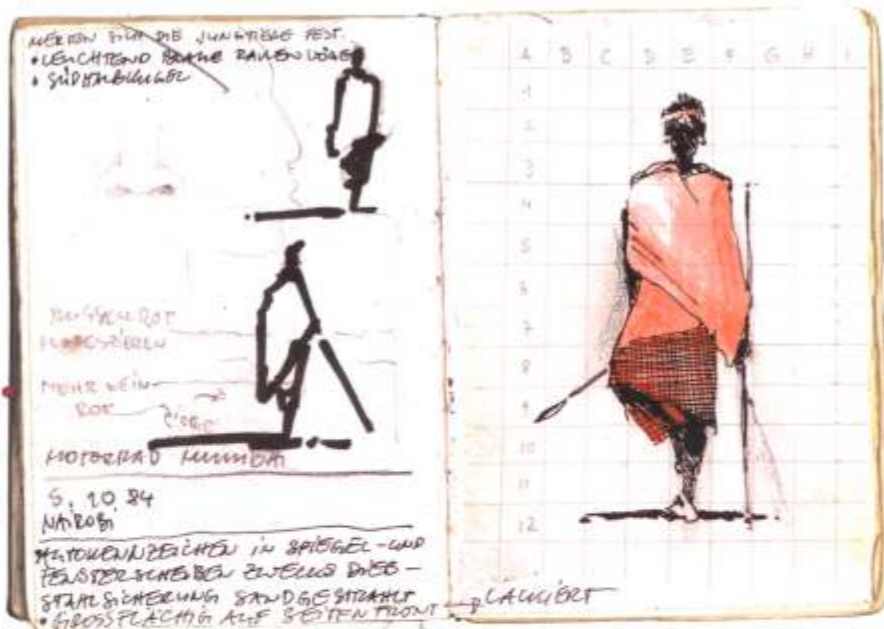 MERKEN SICH DIE JUNGTIERE FEST.
• LEUCHTEND BLAUE RAKENVÖGEL
• SÜDHALBKUGEL
AUSSEN ROT
MEHR WEIN-
ROT
MOTORRAD
5. 10 84
NAIROBI
AUTOKENNZEICHEN IN SPIEGEL- UND
FENSTERSCHEIBEN ZWECKS DIEB-
STAHLSICHERUNG SANDGESTRAHLT
• GROSSFLÄCHIG AUF SEITENFRONT → LACKIERT
A B C D E F G H I
1
2
3
4
5
6
7
8
9
10
11
12